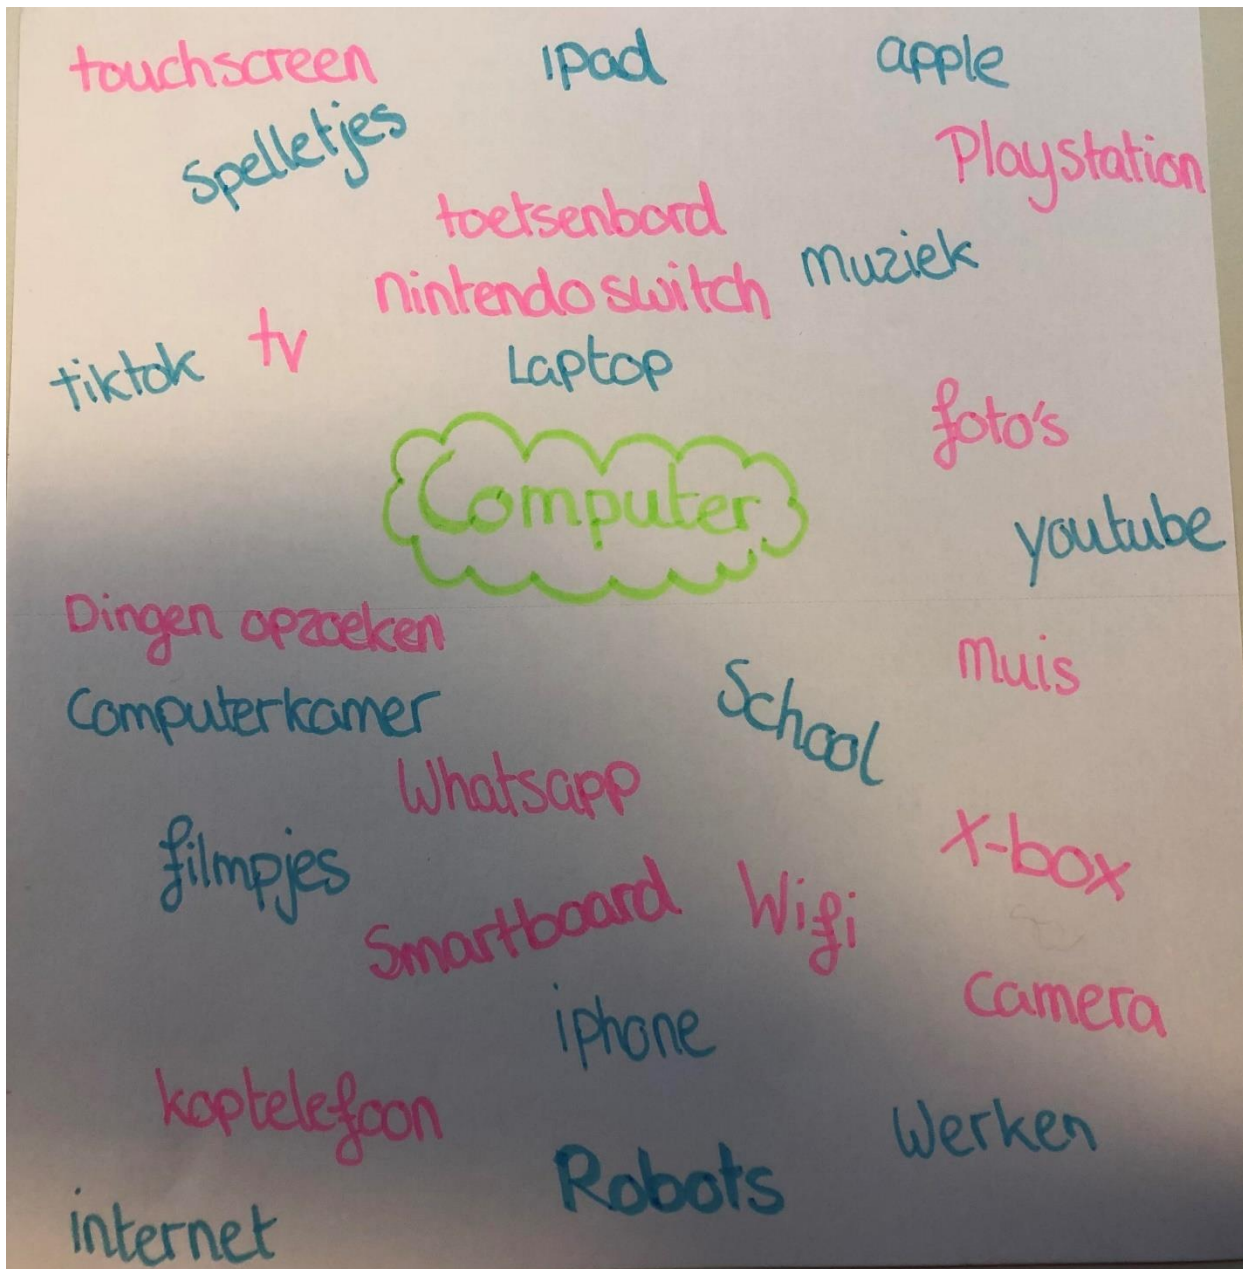 touchscreen
ipad
apple
spelletjes
Playstation
toetsenbord
muziek
nintendo switch
tv
Laptop
tiktok
foto's
Computer
youtube
Dingen opzoeken
muis
Computerkamer
School
Whatsapp
filmpjes
X-box
Smartboard
Wifi
camera
iphone
koptelefoon
Werken
Robots
internet